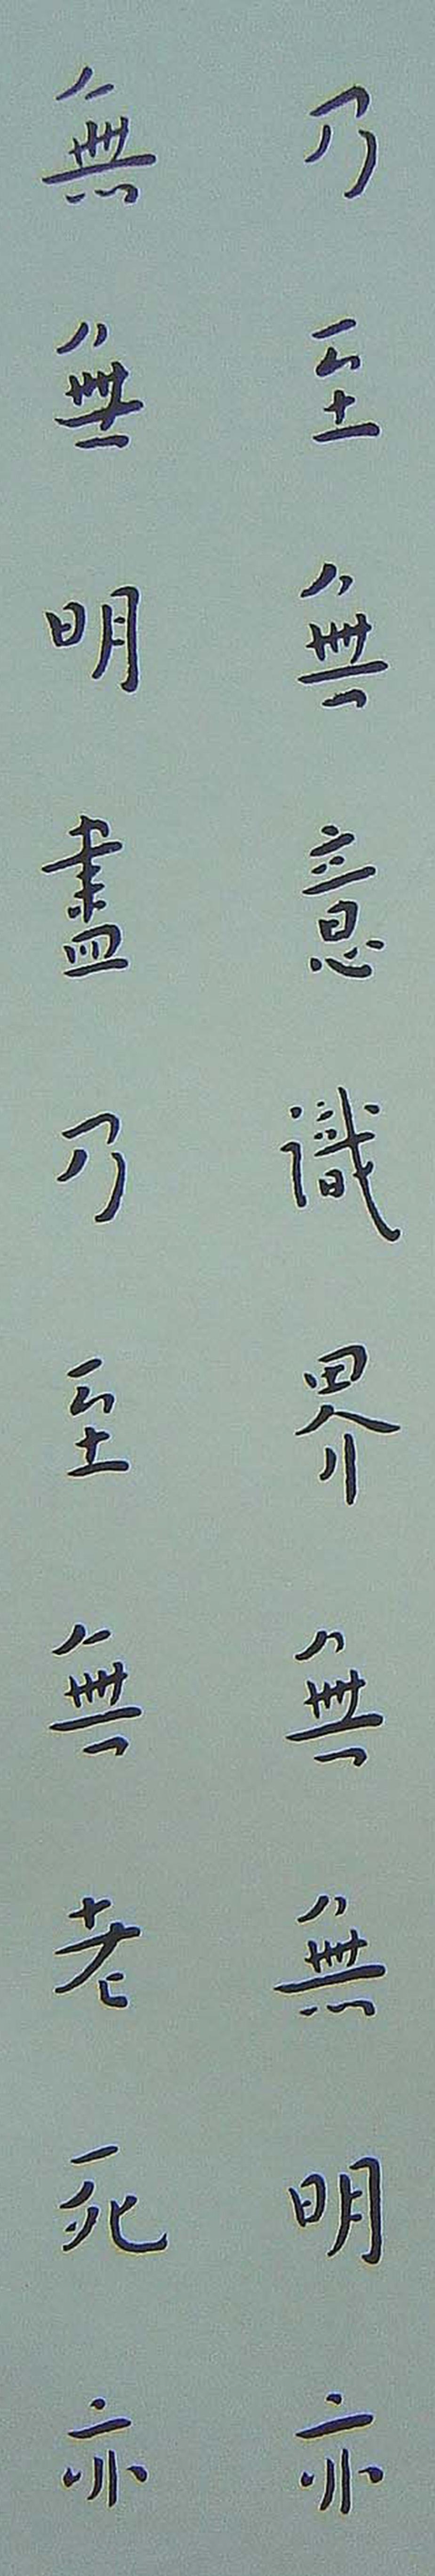 乃至無意識界無無明亦
無無明盡乃至無老死亦